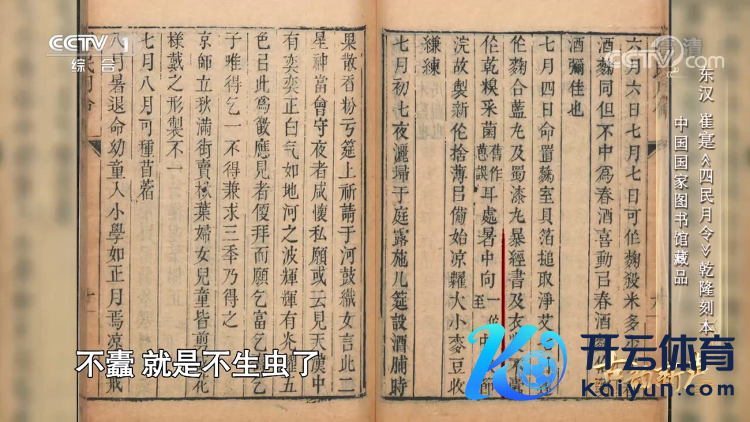 CCTV 1
综合
央视网
东汉 崔寔《四民月令》乾隆刻本
中国国家图书馆藏品
六月六日七月七日可作麴殺米多少
酒麴同但不中為春酒喜動㠯春酒
酒彌佳也
七月四日命置麴室具箔搥取淨艾
作麴合藍丸及蜀漆丸暴經書及衣
作乾糗采葸耳處暑中向
浣故製新作袷薄㠯備始凉糶大小麥豆收
縑練
七月初七夜灑埽于庭露施几筵設酒脯時
果散香粉于筵上祈請于河鼓織女言此二
星神當會守夜者咸懷私願或云見天漢中
有奕奕正白气如地河之波輝輝有光
色㠯此為徵應見者便拜而願乞富乞
子唯得乞一不得兼求三秊乃得之
京師立秋滿街賣楸葉婦女兒童皆剪
様戴之形製不一
七月八月可種苜蓿
八月暑退命幼童入小學如正月焉凉
不蠹 就是不生虫了
开云体育
kaiyun.com